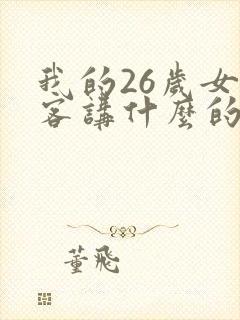 我的26歲女
客講什麼的
董飛